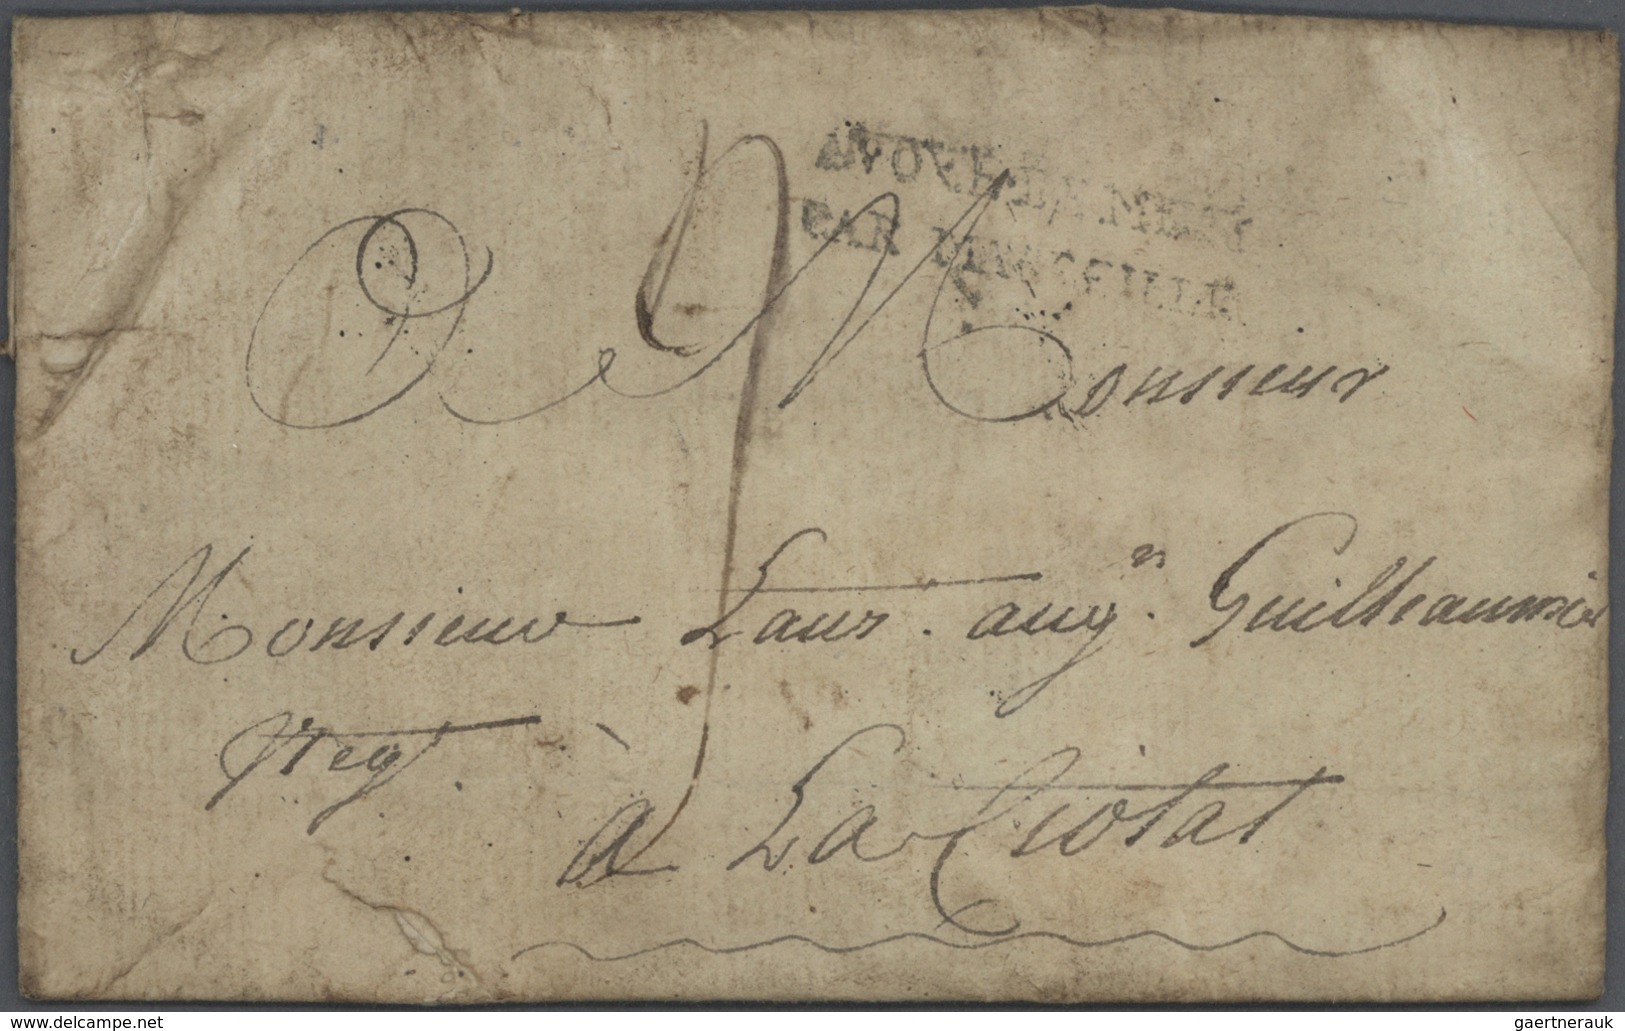 PAR MARSEILLE
A Monsieur
Monsieur Laur. aug.n Guilheaumier
Neg.t
à La Ciotat
www.delcampe.net
gaertnerauk